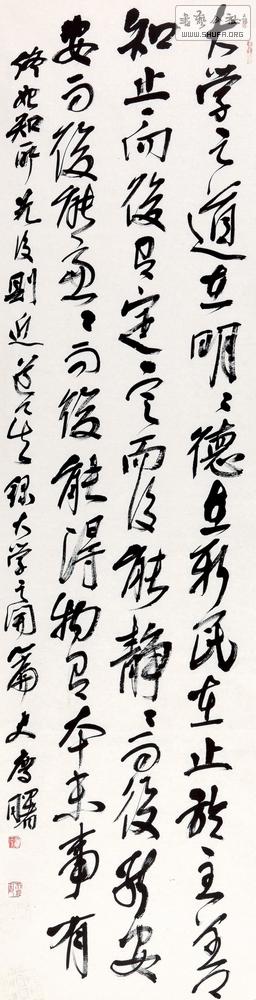 书艺公社
WWW.SHUFA.ORG
大学之道在明〻德在新民在止於至善
知止而後有定定而后能静〻而後能安
安而後能慮〻而後能得物有本末事有
终始知所先后則近道矣録大学之開篇